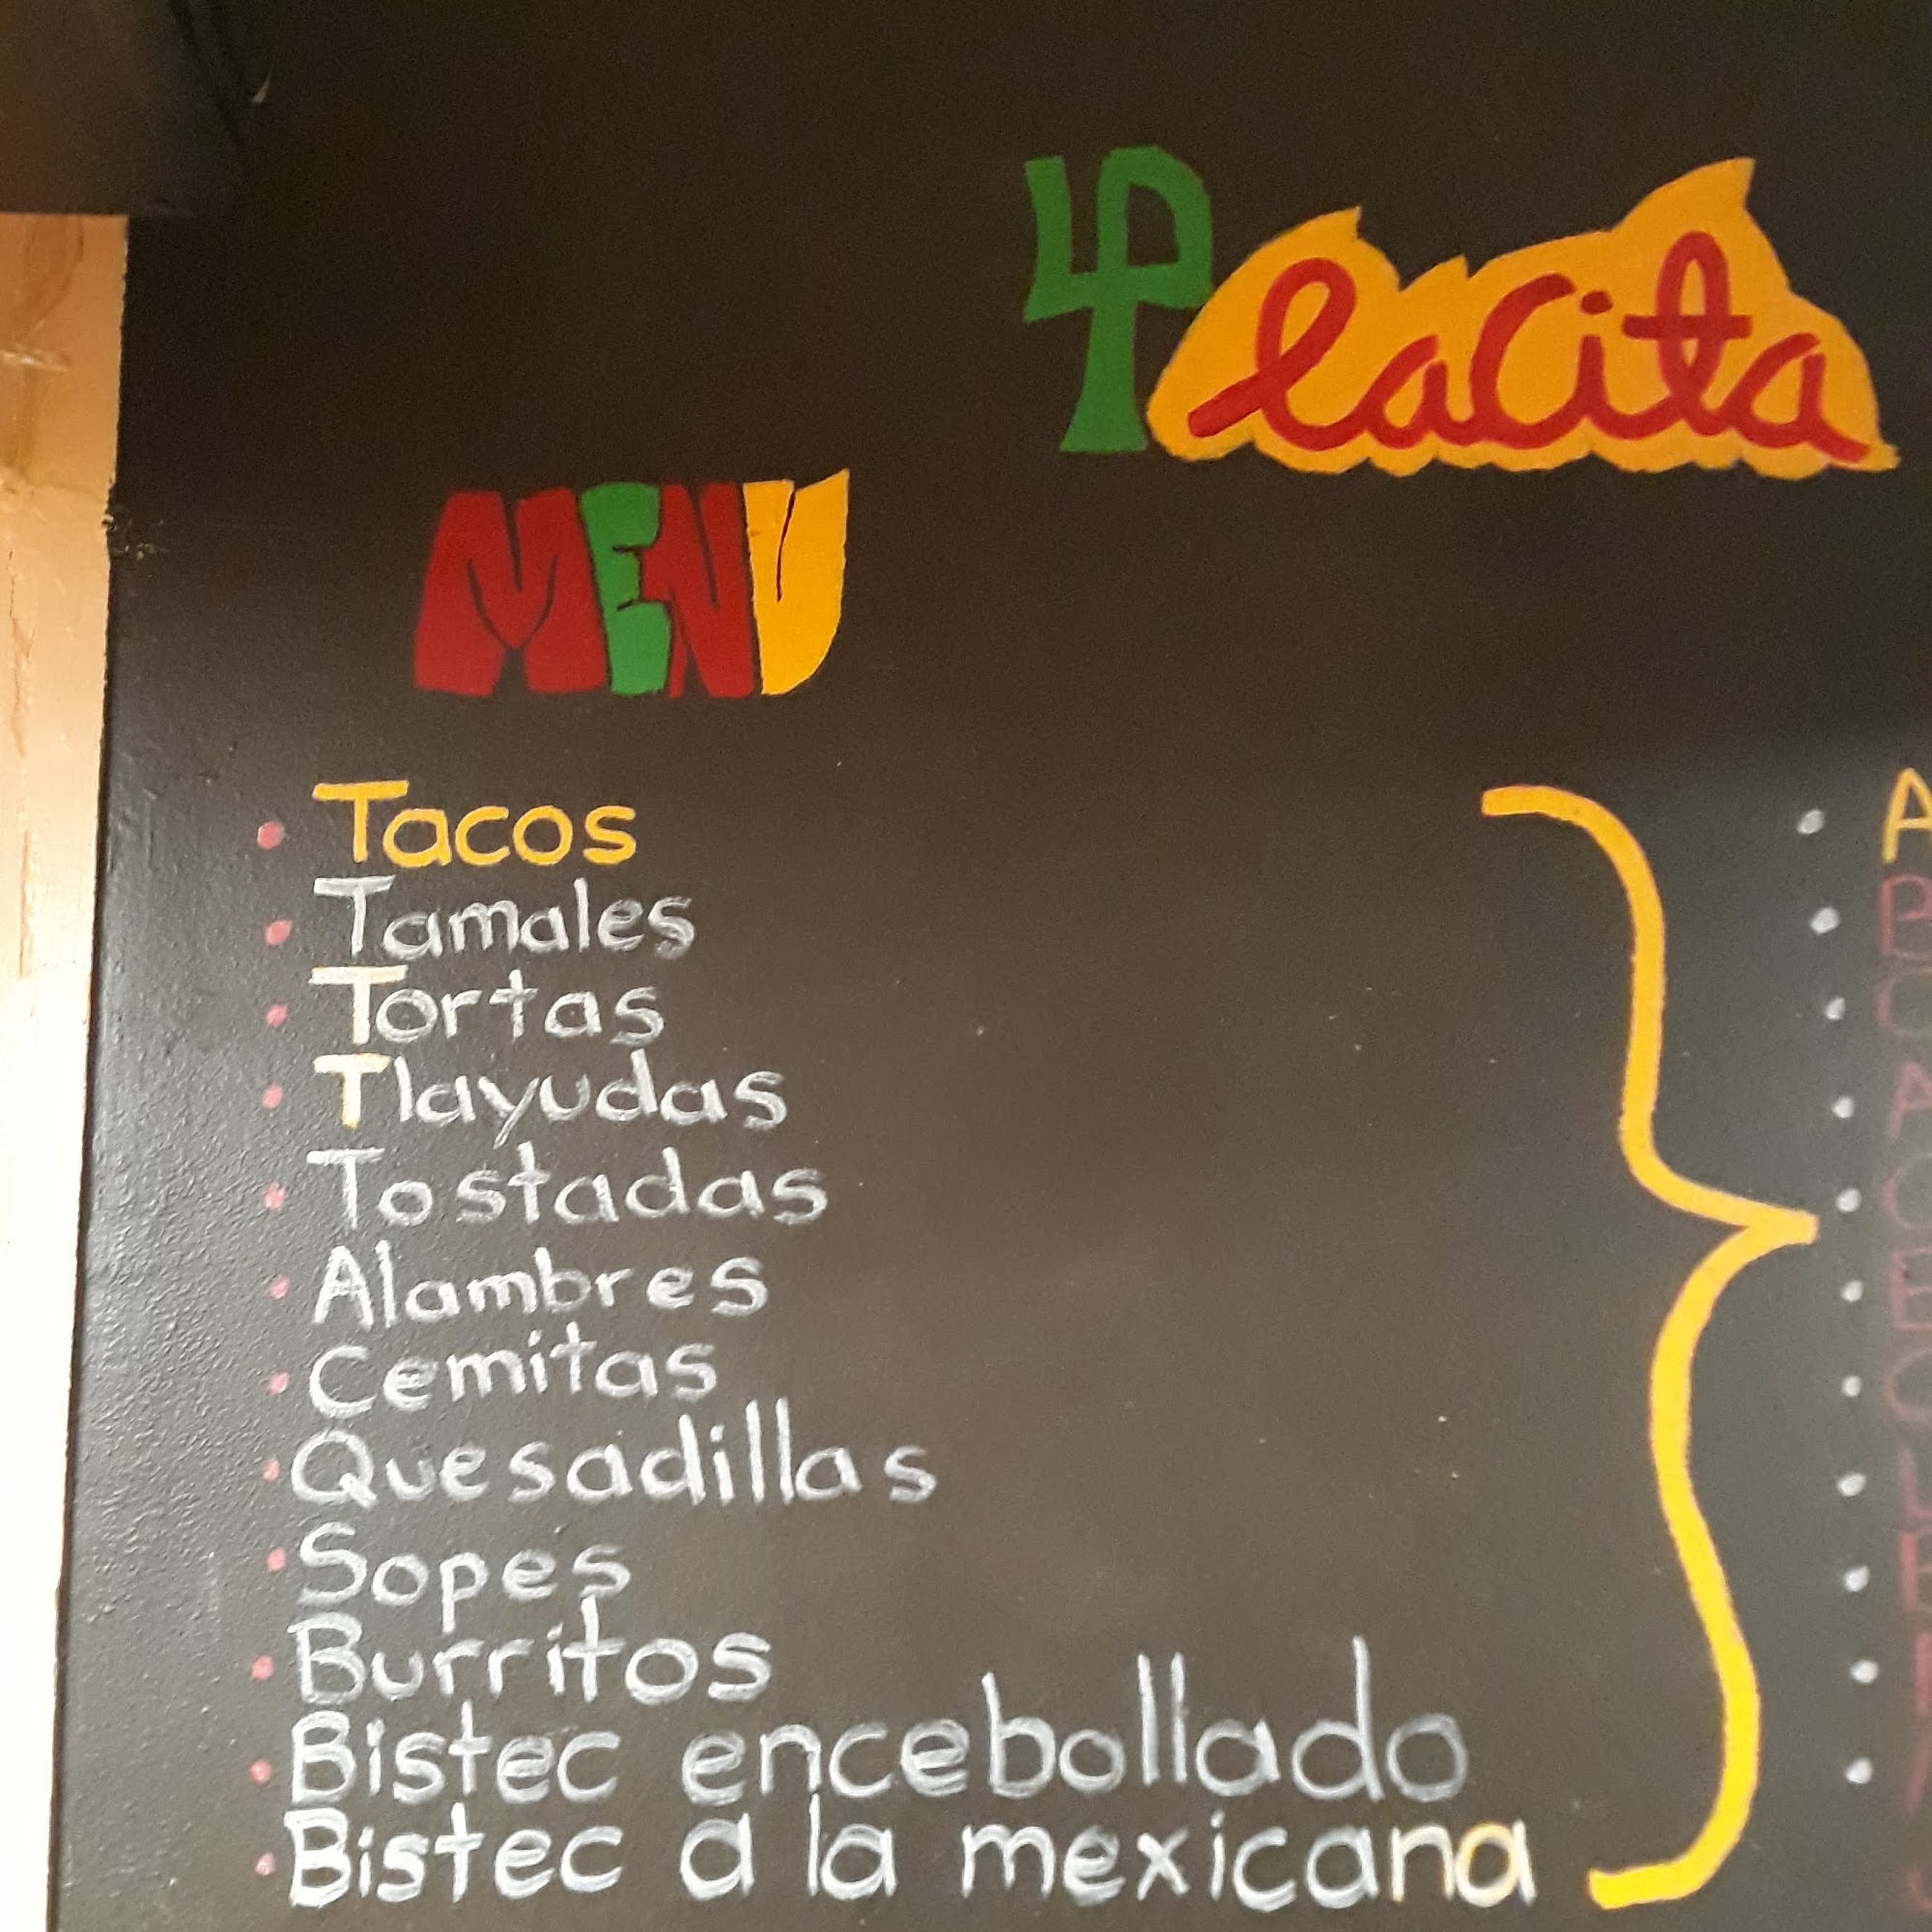 Placita
MENU
Tacos
Tamales
Tortas
Tlayudas
Tostadas
Alambres
Cemitas
Quesadillas
Sopes
Burritos
Bistec encebollado
Bistec a la mexicana